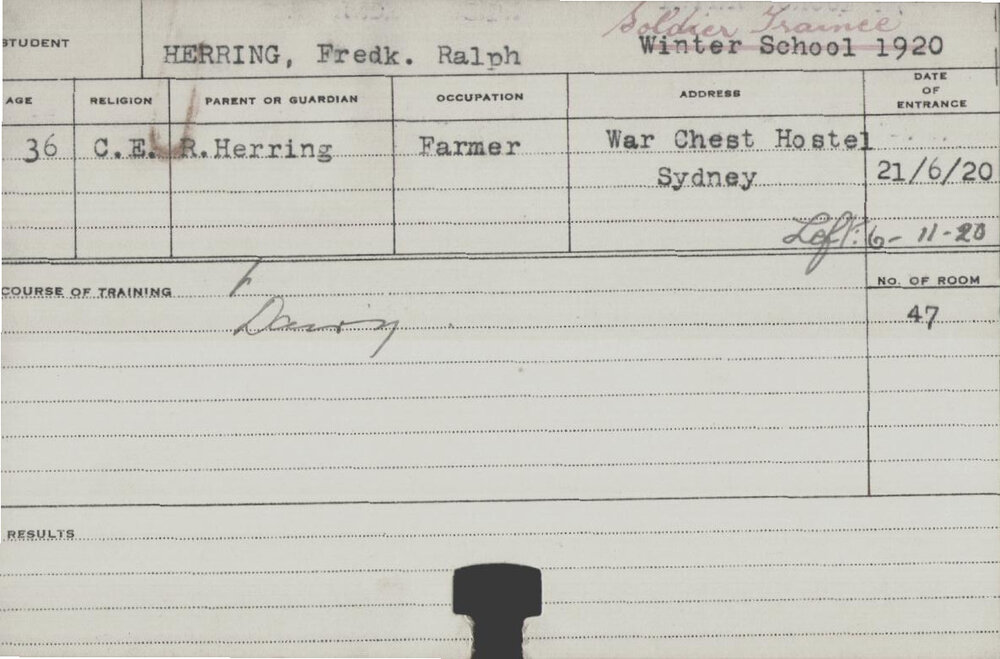 Soldier Trainee
STUDENT HERRING, Fredk. Ralph Winter School 1920
AGE RELIGION PARENT OR GUARDIAN OCCUPATION ADDRESS DATE OF ENTRANCE
36 C.E. R.Herring Farmer War Chest Hostel
Sydney 21/6/20
Left: 6-11-20
COURSE OF TRAINING NO. OF ROOM
Dairy 47
RESULTS